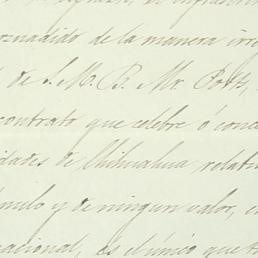 suadido de la manera irre
de S. M. B. Mr. Potts,
contrato que celebre ó conc
idades de Chihuahua relati
nulo y de ningun valor, e
nacional, es el único que t